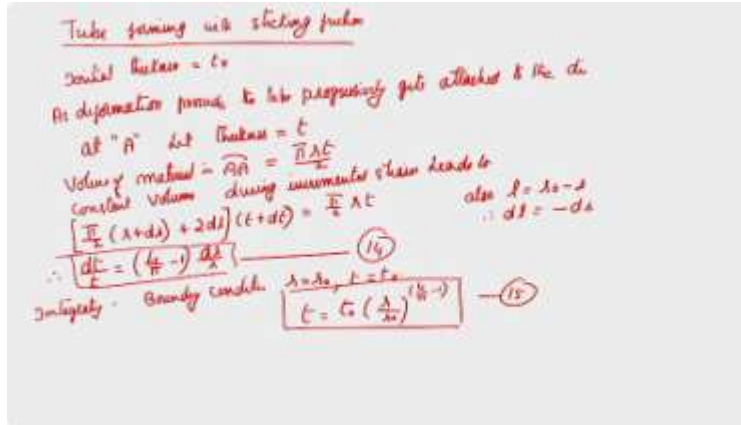 Tube forming with sticking friction
Initial thickness = t₀
As deformation proceeds the tube progressively gets attached to the die
at "A" let thickness = t
Volume of material in AA = πrt/2
Constant volume during incremental strain leads to
[π/2 (r+dr) + 2dl] (t+dt) = π/2 rt
also l = r₀-r
∴ dl = -dr
∴ dt/t = (4/π -1) dr/r (14)
Integrating. Boundary condition r=r₀, t=t₀
t = t₀ (r/r₀)^(4/π -1) (15)